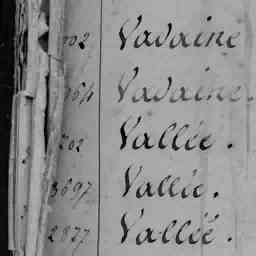 702 Vadaine
Vadaine.
202 Vallée.
3697 Vallée.
2877 Vallée.